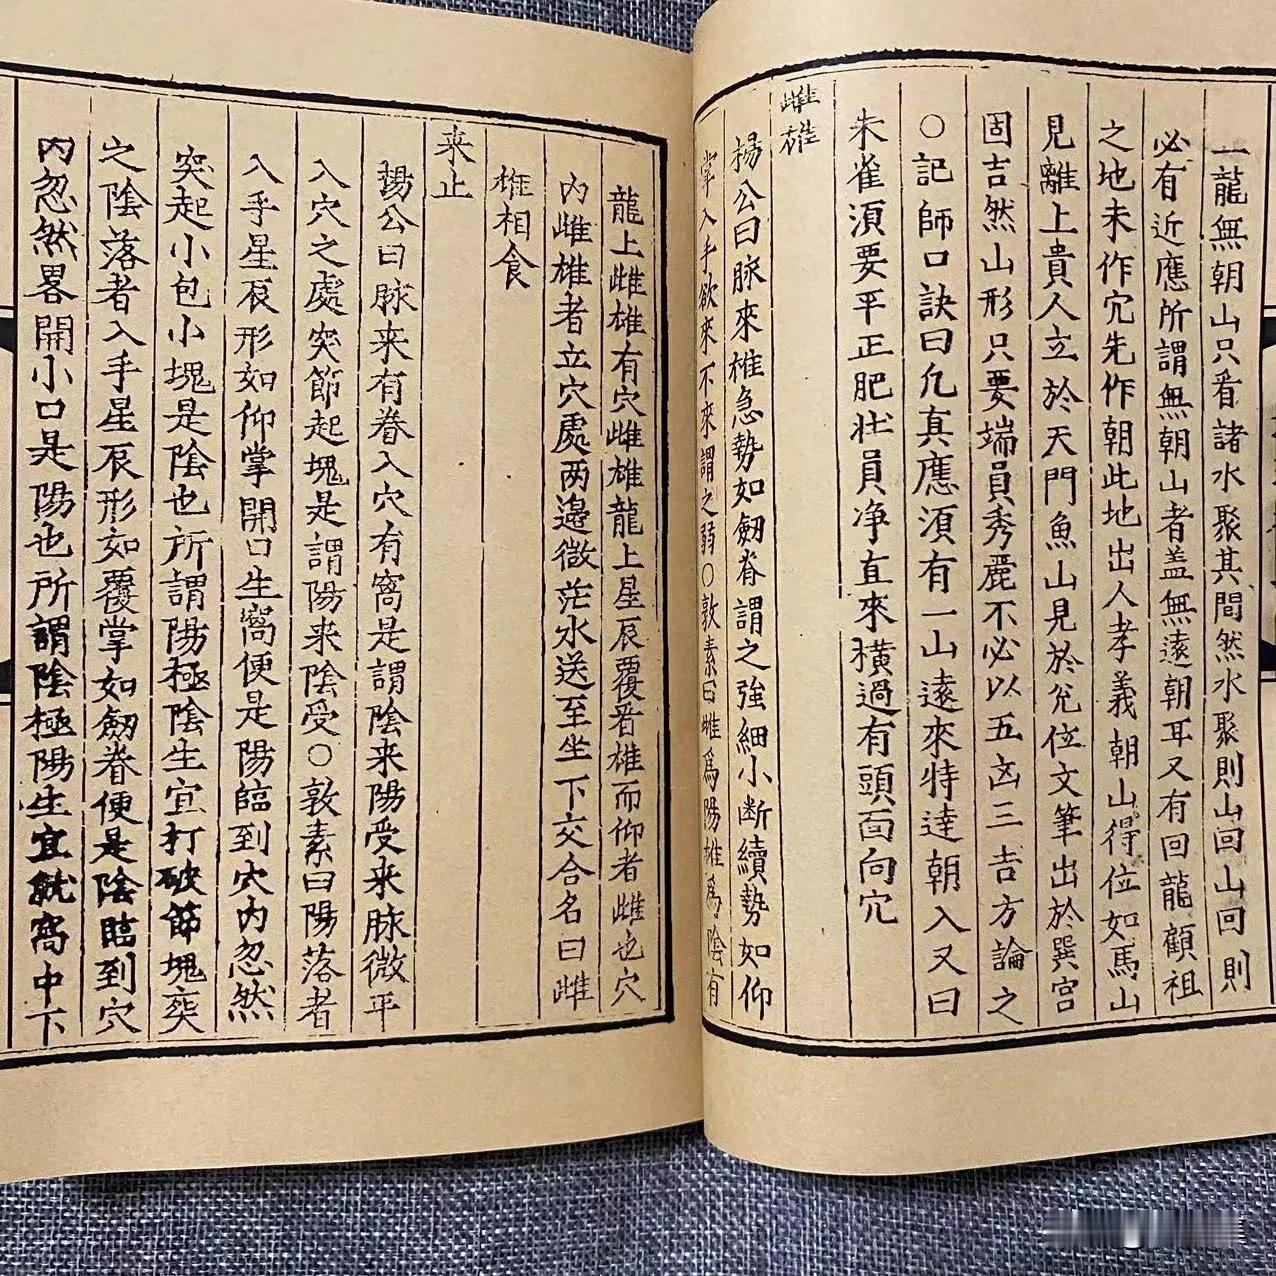 龍無朝山只看諸水聚其間然水聚則山回山回則
必有近應所謂無朝山者盖無遠朝耳又有回龍顧祖
之地未作穴先作朝此地出人孝義朝山得位如馬山
見離上貴人立於天門魚山見於兊位文筆出於巽宫
固吉然山形只要端員秀麗不必以五凶三吉方論之
○記師口訣曰凡真應須有一山遠來特達朝入又曰
朱雀須要平正肥壯員净直來橫過有頭面向穴
雌雄
楊公曰脉來雄急勢如劒脊謂之強細小断續勢如仰
掌入手欲來不來謂之弱○敦素曰雌爲陽雄爲陰有
龍上雌雄有穴雌雄龍上星辰覆者雄而仰者雌也穴
内雌雄者立穴處两邉微茫水送至坐下交合名曰雌
雄相食
来止
楊公曰脉来有脊入穴有窩是謂陰来陽受来脉微平
入穴之處突節起塊是謂陽来陰受○敦素曰陽落者
入手星辰形如仰掌開口生窩便是陽臨到穴内忽然
突起小包小塊是陰也所謂陽極陰生宜打破節塊奕
之陰落者入手星辰形如覆掌如劒脊便是陰臨到穴
内忽然畧開小口是陽也所謂陰極陽生宜就窩中下